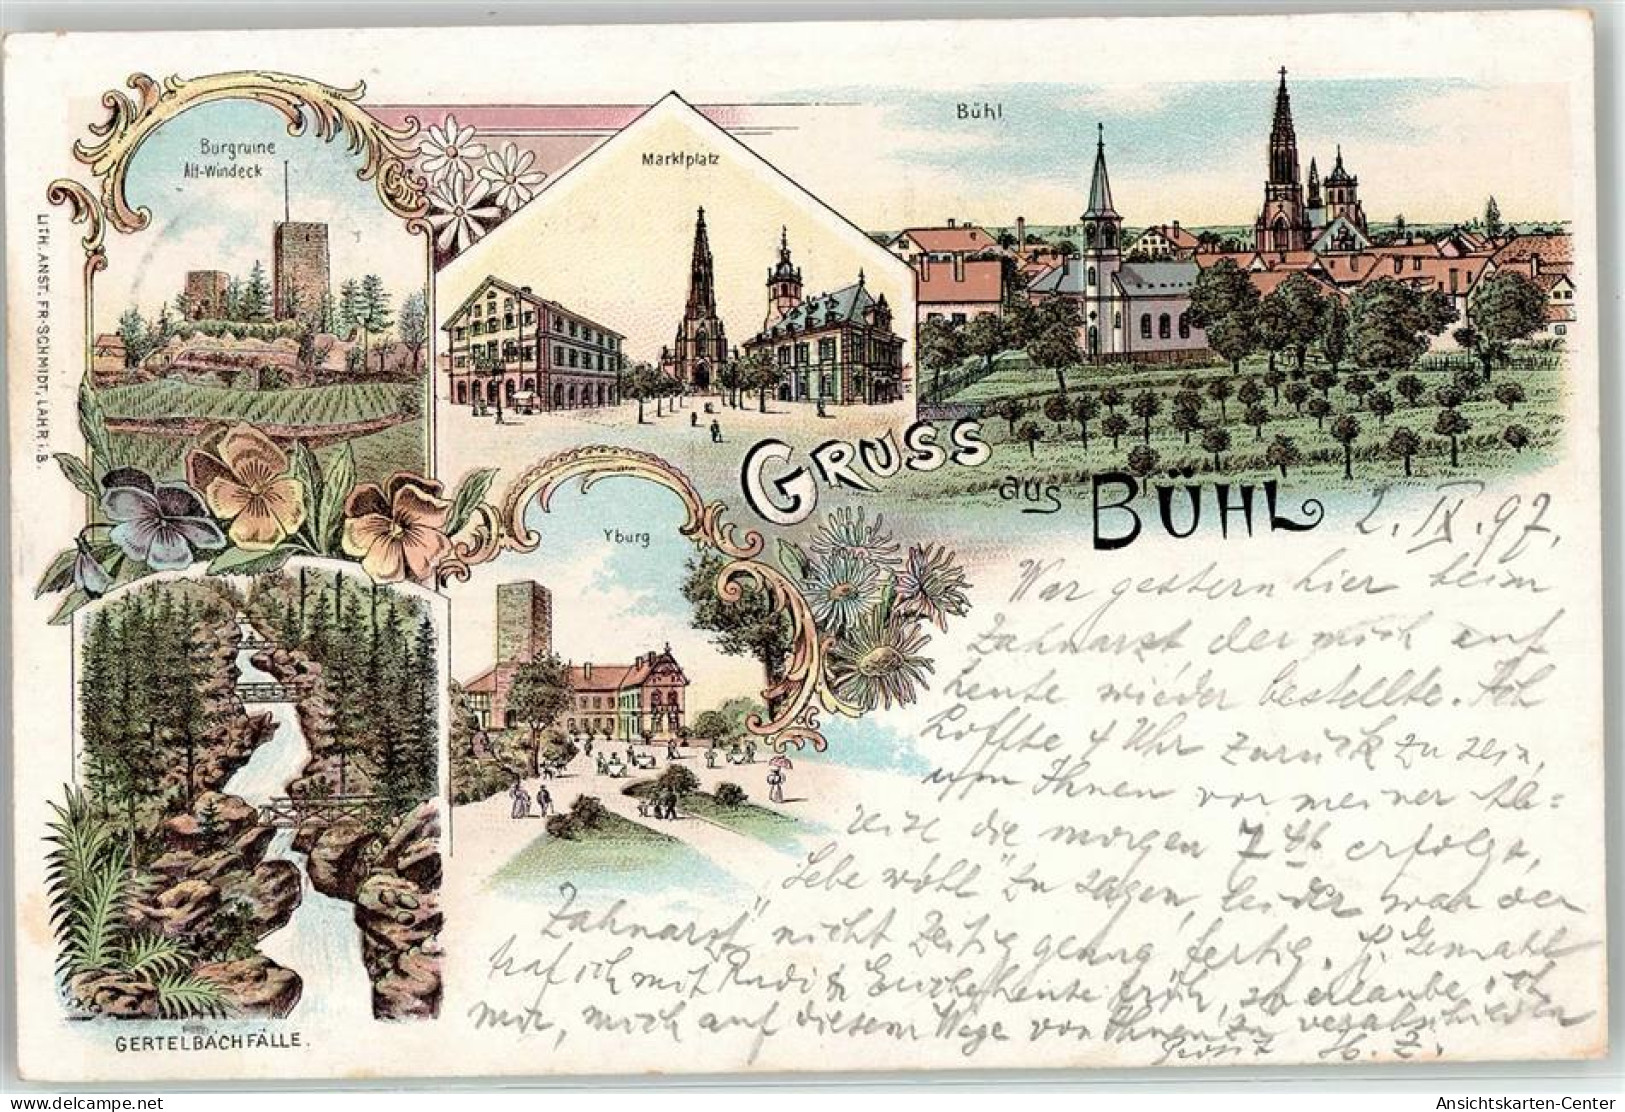 Burgruine
Alt-Windeck
Marktplatz
Bühl
LITH. ANST. FR. SCHMIDT, LAHR i. B.
GRUSS
aus BÜHL
Yburg
GERTELBACHFÄLLE.
2. IX. 97.
War gestern hier beim
Zahnarzt, der mich auf
heute wieder bestellte. Ich
hoffte 4 Uhr zurück zu sein,
um Ihnen vor meiner Ab=
reise die morgen 7 erfolgt,
"Lebe wohl" zu sagen, leider war der
Zahnarzt nicht zeitig genug fertig. H. Gemahl
traf ich mit Rudi & heute früh, so erlaube ich
mir, mich auf diesem Wege von Ihnen zu verabschieden
H. Z.
Ansichtskarten-Center
www.delcampe.net